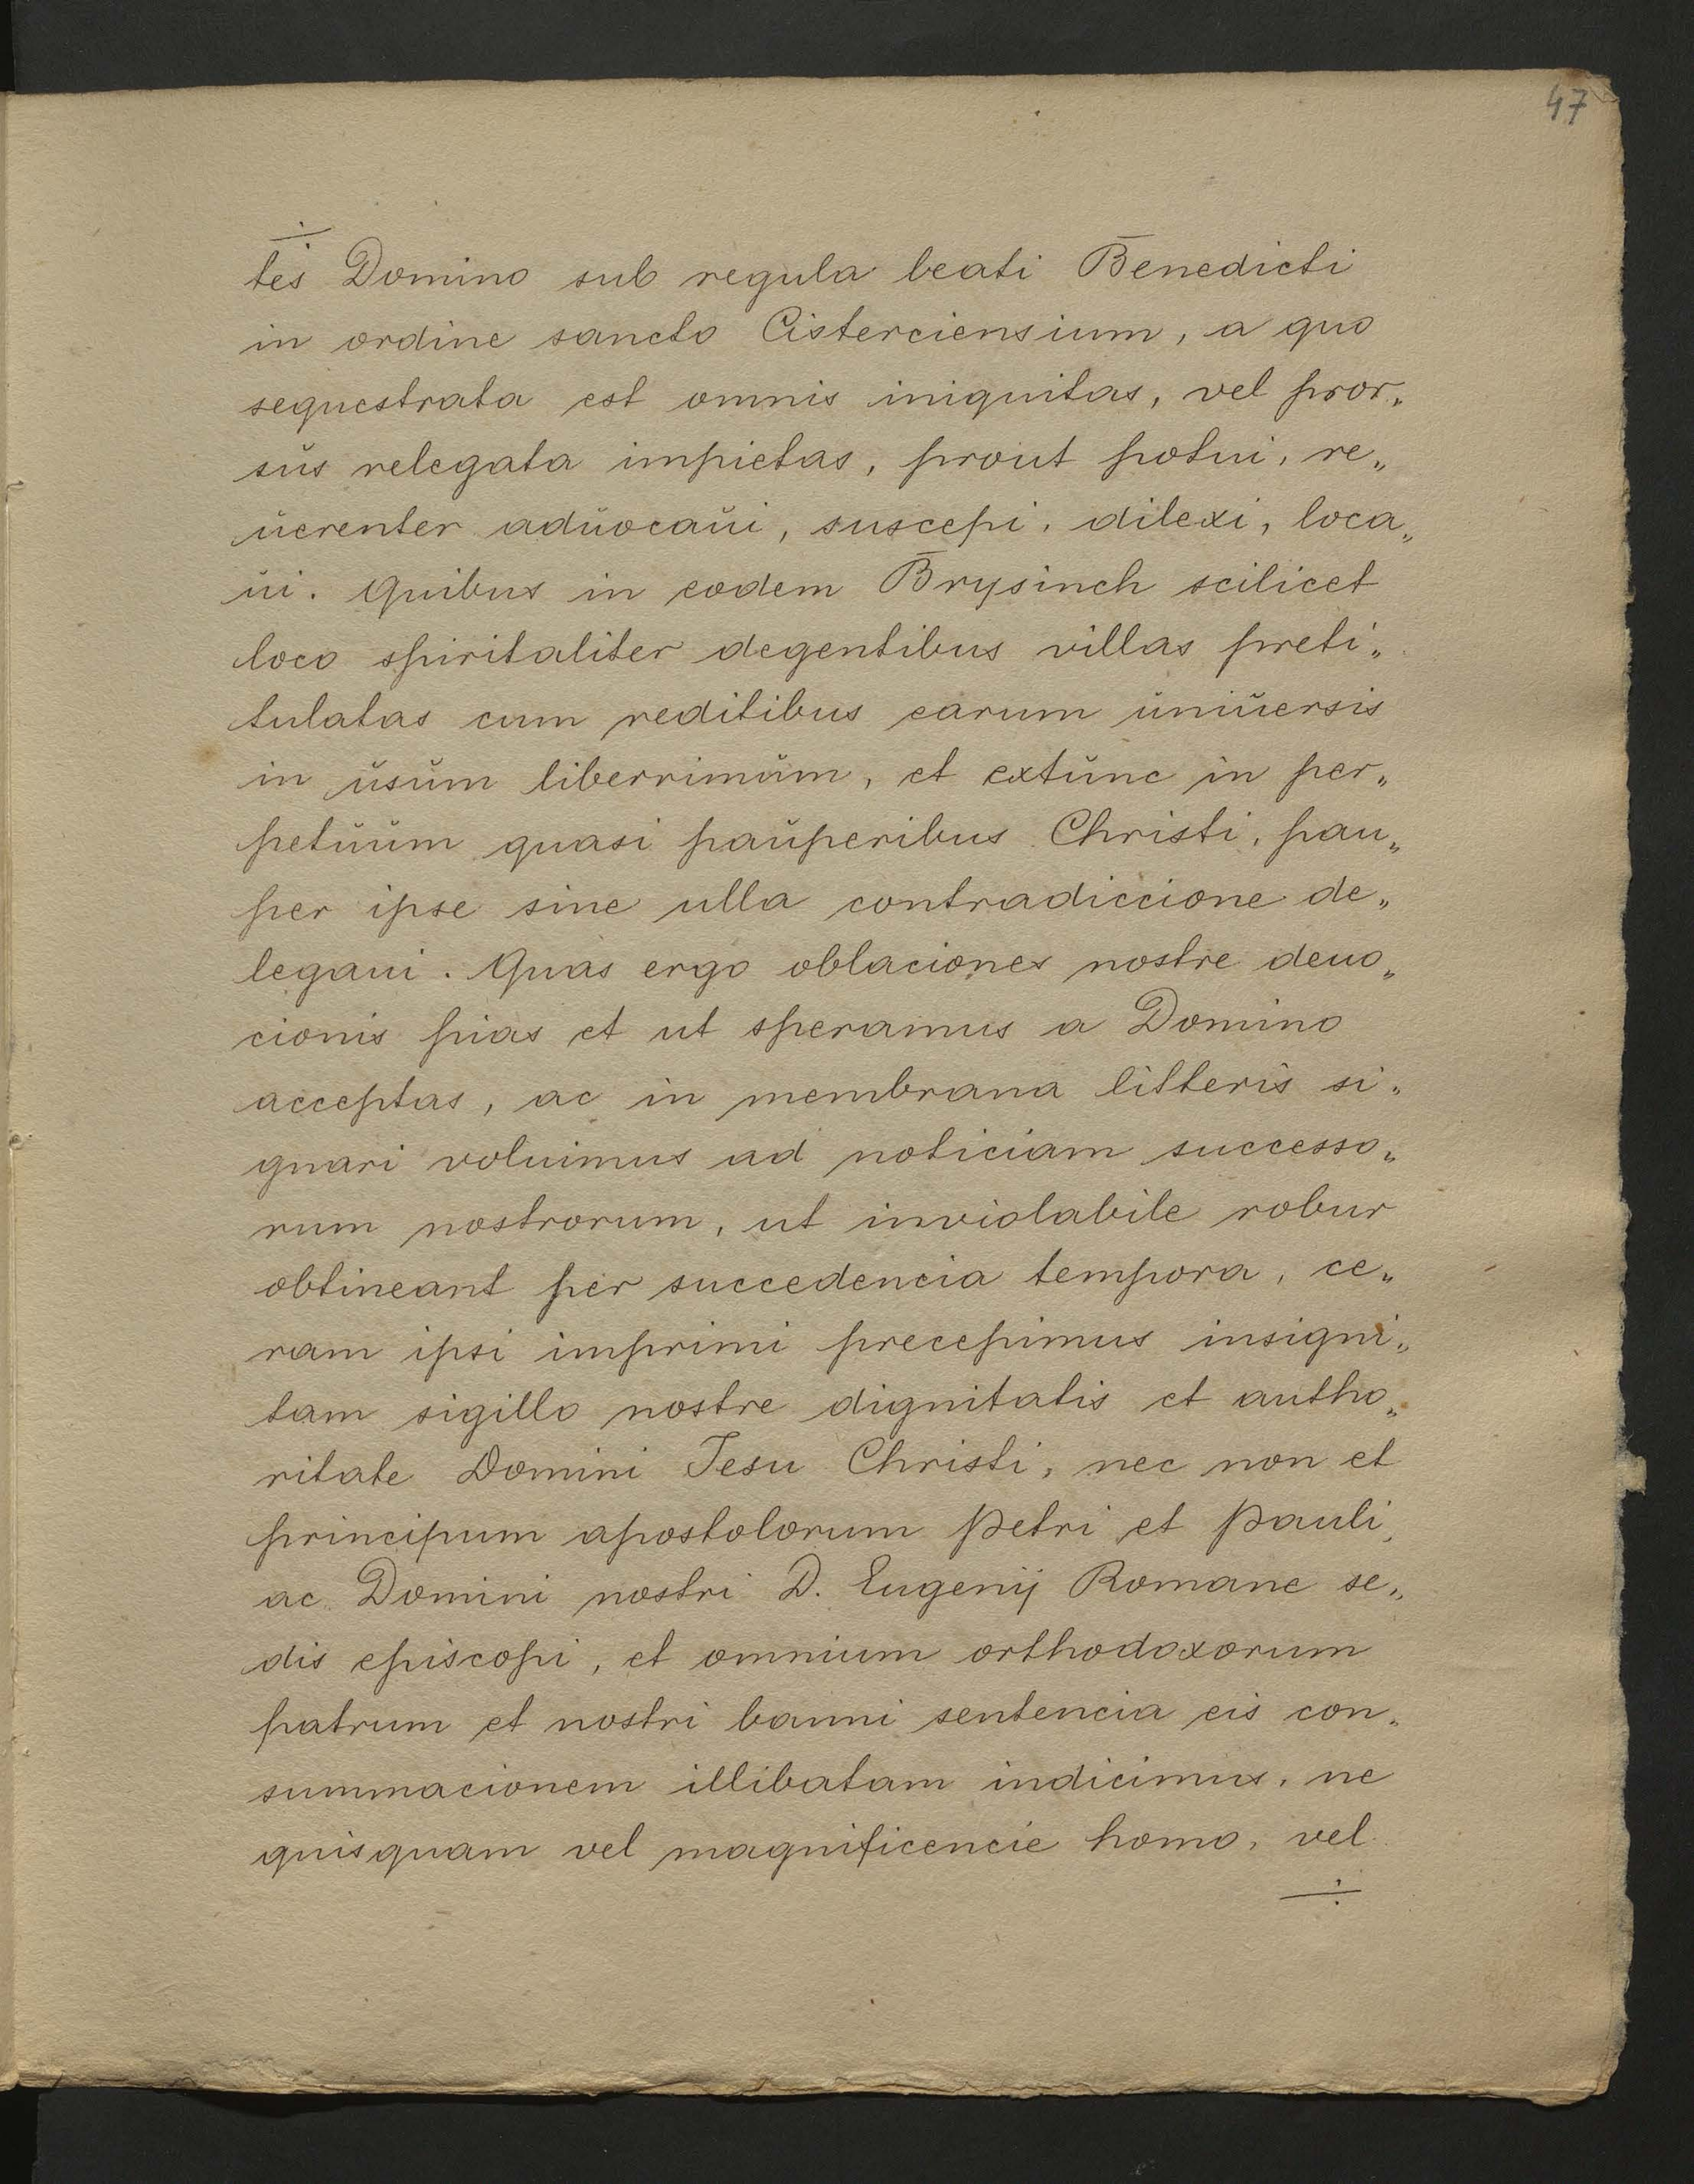 47
÷
tes Domino sub regula beati Benedicti
in ordine sancto Cisterciensium, a quo
sequestrata est omnis iniquitas, vel pror„
sŭs relegata impietas, prout potui, re„
ŭerenter adŭocaŭi, suscepi, dilexi, loca„
ŭi. Quibus in eodem Brysinch scilicet
loco spiritaliter degentibus villas preti„
tulatas cum reditibus earum ŭniŭersis
in ŭsŭm liberrimŭm, et extŭnc in per„
petŭŭm quasi paŭperibus Christi, pau„
per ipse sine ulla contradiccione de„
legaui. Quas ergo oblaciones nostre deuo„
cionis pias et ut speramus a Domino
acceptas, ac in membrana litteris si„
gnari voluimus ad noticiam successo„
rum nostrorum, ut inviolabile robur
obtineant per succedencia tempora, ce„
ram ipsi imprimi precepimus insigni„
tam sigillo nostre dignitatis et autho„
ritate Domini Jesu Christi, nec non et
principum apostolorum Petri et Pauli,
ac Domini nostri D. Eugenij Romane se„
dis episcopi, et omnium orthodoxorum
patrum et nostri banni sentencia eis con„
summacionem illibatam indicimus, ne
quisquam vel magnificencie homo, vel
÷